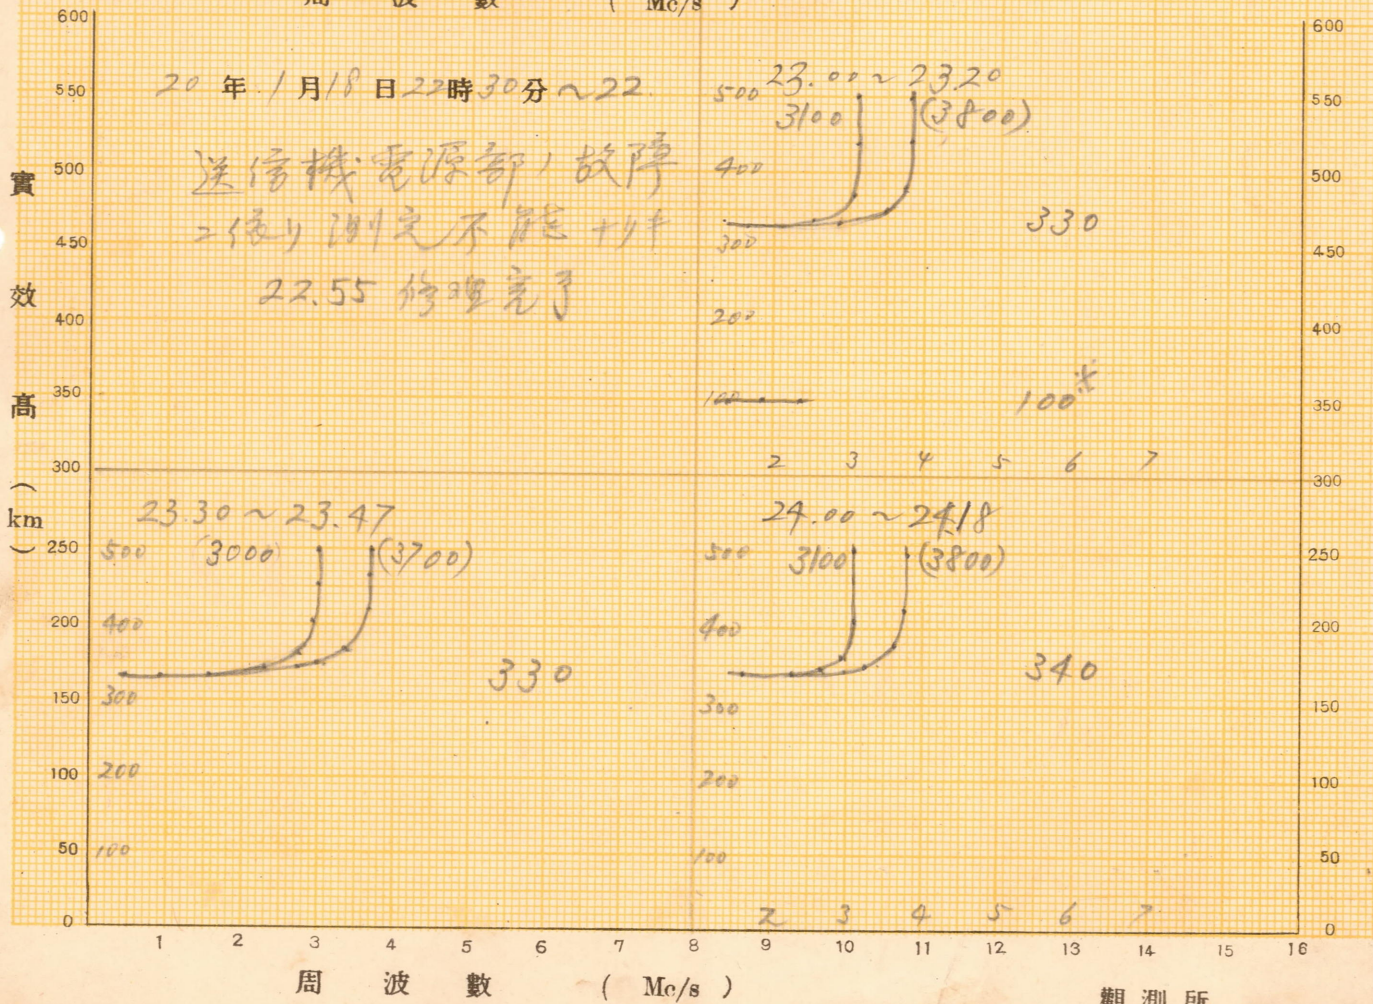 周 波 數 ( Mc/s )
600
550
500
450
400
350
300
250
200
150
100
50
0
實 效 高 ( km )
20 年 1 月 18 日 22 時 30 分 ~ 22.
送信機電源部ノ故障
ニ依リ測定不能ナリキ
22.55 修理完了
23.00 ~ 23.20
500 3100 (3800)
400
300 330
200
100 100※
2 3 4 5 6 7
23.30 ~ 23.47
500 (3000) (3700)
400
300 330
200
100
24.00 ~ 24.18
500 3100 (3800)
400
300 340
200
100
2 3 4 5 6 7
600
550
500
450
400
350
300
250
200
150
100
50
0
1 2 3 4 5 6 7 8 9 10 11 12 13 14 15 16
周 波 數 ( Mc/s )
觀測所